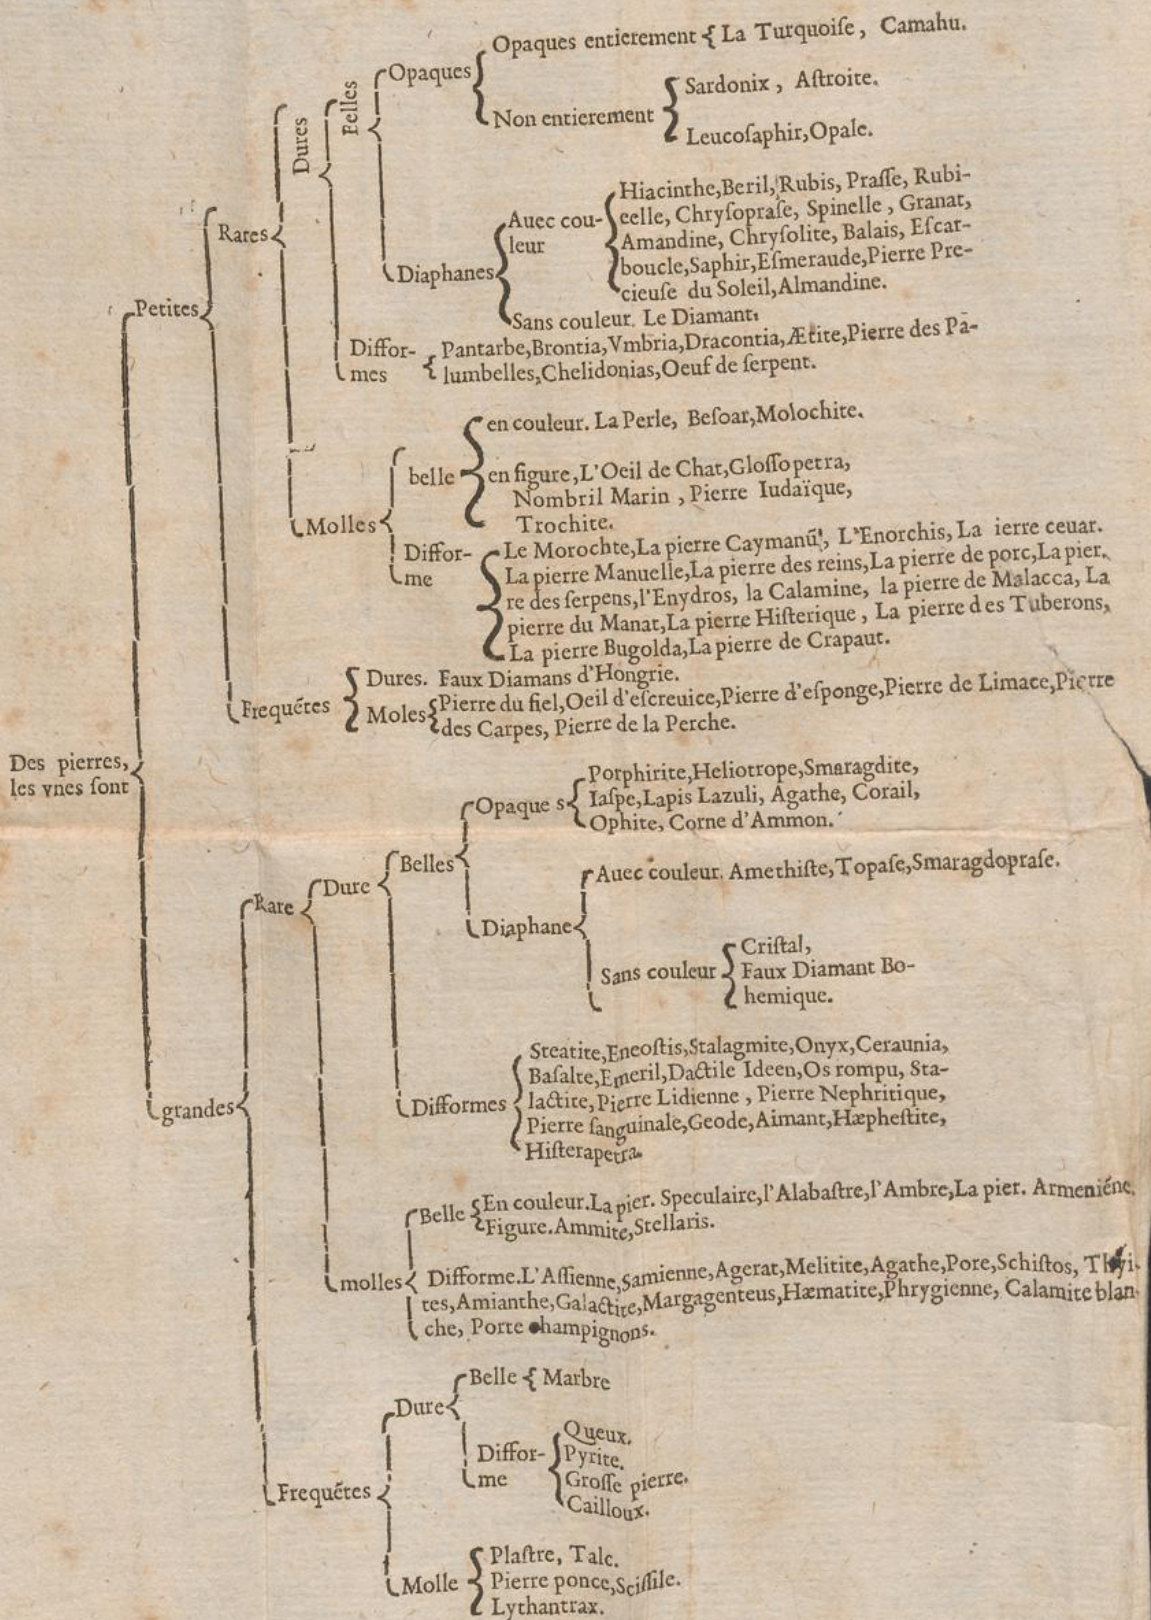 Opaques entierement { La Turquoiſe, Camahu.
Opaques
Belles
Dures
Sardonix, Aſtroite.
Non entierement
Leucoſaphir, Opale.
Rares
Hiacinthe, Beril, Rubis, Praſſe, Rubi-
celle, Chryſopraſe, Spinelle, Granat,
Auec cou-
leur
Amandine, Chryſolite, Balais, Eſcar-
boucle, Saphir, Eſmeraude, Pierre Pre-
cieuſe du Soleil, Almandine.
Diaphanes
Sans couleur. Le Diamant.
Petites
Diffor-
mes
Pantarbe, Brontia, Vmbria, Dracontia, Ætite, Pierre des Pa-
lumbelles, Chelidonias, Oeuf de ſerpent.
en couleur. La Perle, Beſoar, Molochite.
belle
en figure, L'Oeil de Chat, Gloſſopetra,
Nombril Marin, Pierre Iudaïque,
Trochite.
Molles
Diffor-
me
Le Morochte, La pierre Caymanũ, L'Enorchis, La ierre ceuar.
La pierre Manuelle, La pierre des reins, La pierre de porc, La pier.
re des ſerpens, l'Enydros, la Calamine, la pierre de Malacca, La
pierre du Manat, La pierre Hiſterique, La pierre des Tuberons,
La pierre Bugolda, La pierre de Crapaut.
Dures. Faux Diamans d'Hongrie.
Frequẽtes
Moles
Pierre du fiel, Oeil d'eſcreuice, Pierre d'eſponge, Pierre de Limace, Pierre
des Carpes, Pierre de la Perche.
Des pierres,
les vnes ſont
Porphirite, Heliotrope, Smaragdite,
Opaque s
Iaſpe, Lapis Lazuli, Agathe, Corail,
Ophite, Corne d'Ammon.
Belles
Auec couleur. Amethiſte, Topaſe, Smaragdopraſe.
Dure
Rare
Diaphane
Criſtal,
Sans couleur
Faux Diamant Bo-
hemique.
Steatite, Eneoſtis, Stalagmite, Onyx, Ceraunia,
Baſalte, Emeril, Dactile Ideen, Os rompu, Sta-
Difformes
lactite, Pierre Lidienne, Pierre Nephritique,
Pierre ſanguinale, Geode, Aimant, Hæpheſtite,
Hiſterapetra.
grandes
Belle
En couleur. La pier. Speculaire, l'Alabaſtre, l'Ambre, La pier. Armeniéne.
Figure. Ammite, Stellaris.
molles
Difforme. L'Aſſienne, Samienne, Agerat, Melitite, Agathe, Pore, Schiſtos,
tes, Amianthe, Galactite, Margagenteus, Hæmatite, Phrygienne, Calamite blan-
che, Porte champignons.
Belle { Marbre
Dure
Queux.
Diffor-
me
Pyrite.
Groſſe pierre.
Cailloux.
Frequẽtes
Plaſtre, Talc.
Molle
Pierre ponce, Sciſſile.
Lythantrax.